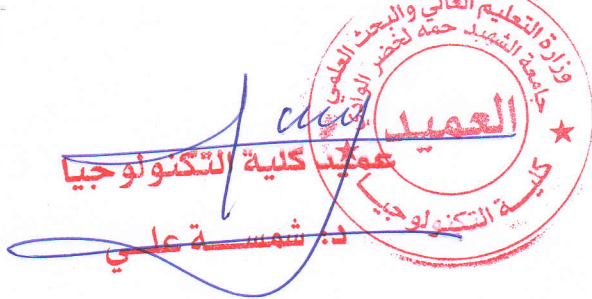 وزارة التعليم العالي والبحث العلمي
جامعة الشهيد حمه لخضر الوادي
العميد
كلية التكنولوجيا
عميد كلية التكنولوجيا
د: شمسة علي